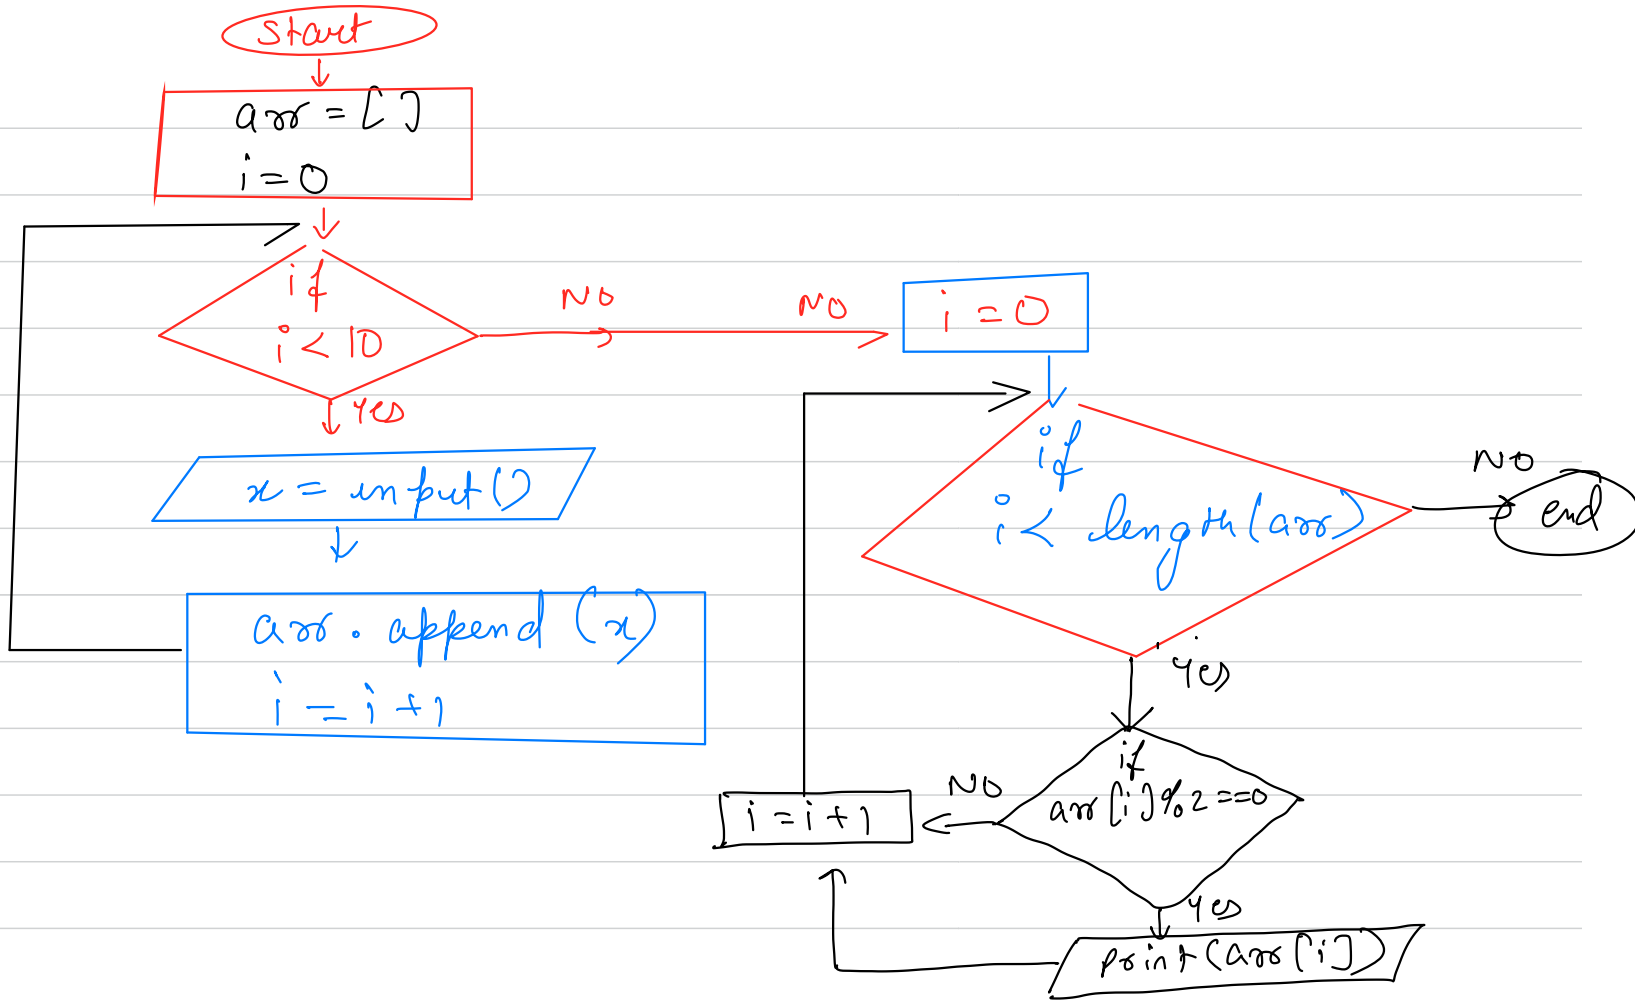 Start
arr = [ ]
i = 0
if
i < 10
NO
NO
yes
x = input()
arr . append (x)
i = i + 1
i = 0
if
i < length(arr)
NO
end
yes
if
arr[i]%2==0
NO
i = i + 1
yes
print(arr[i])